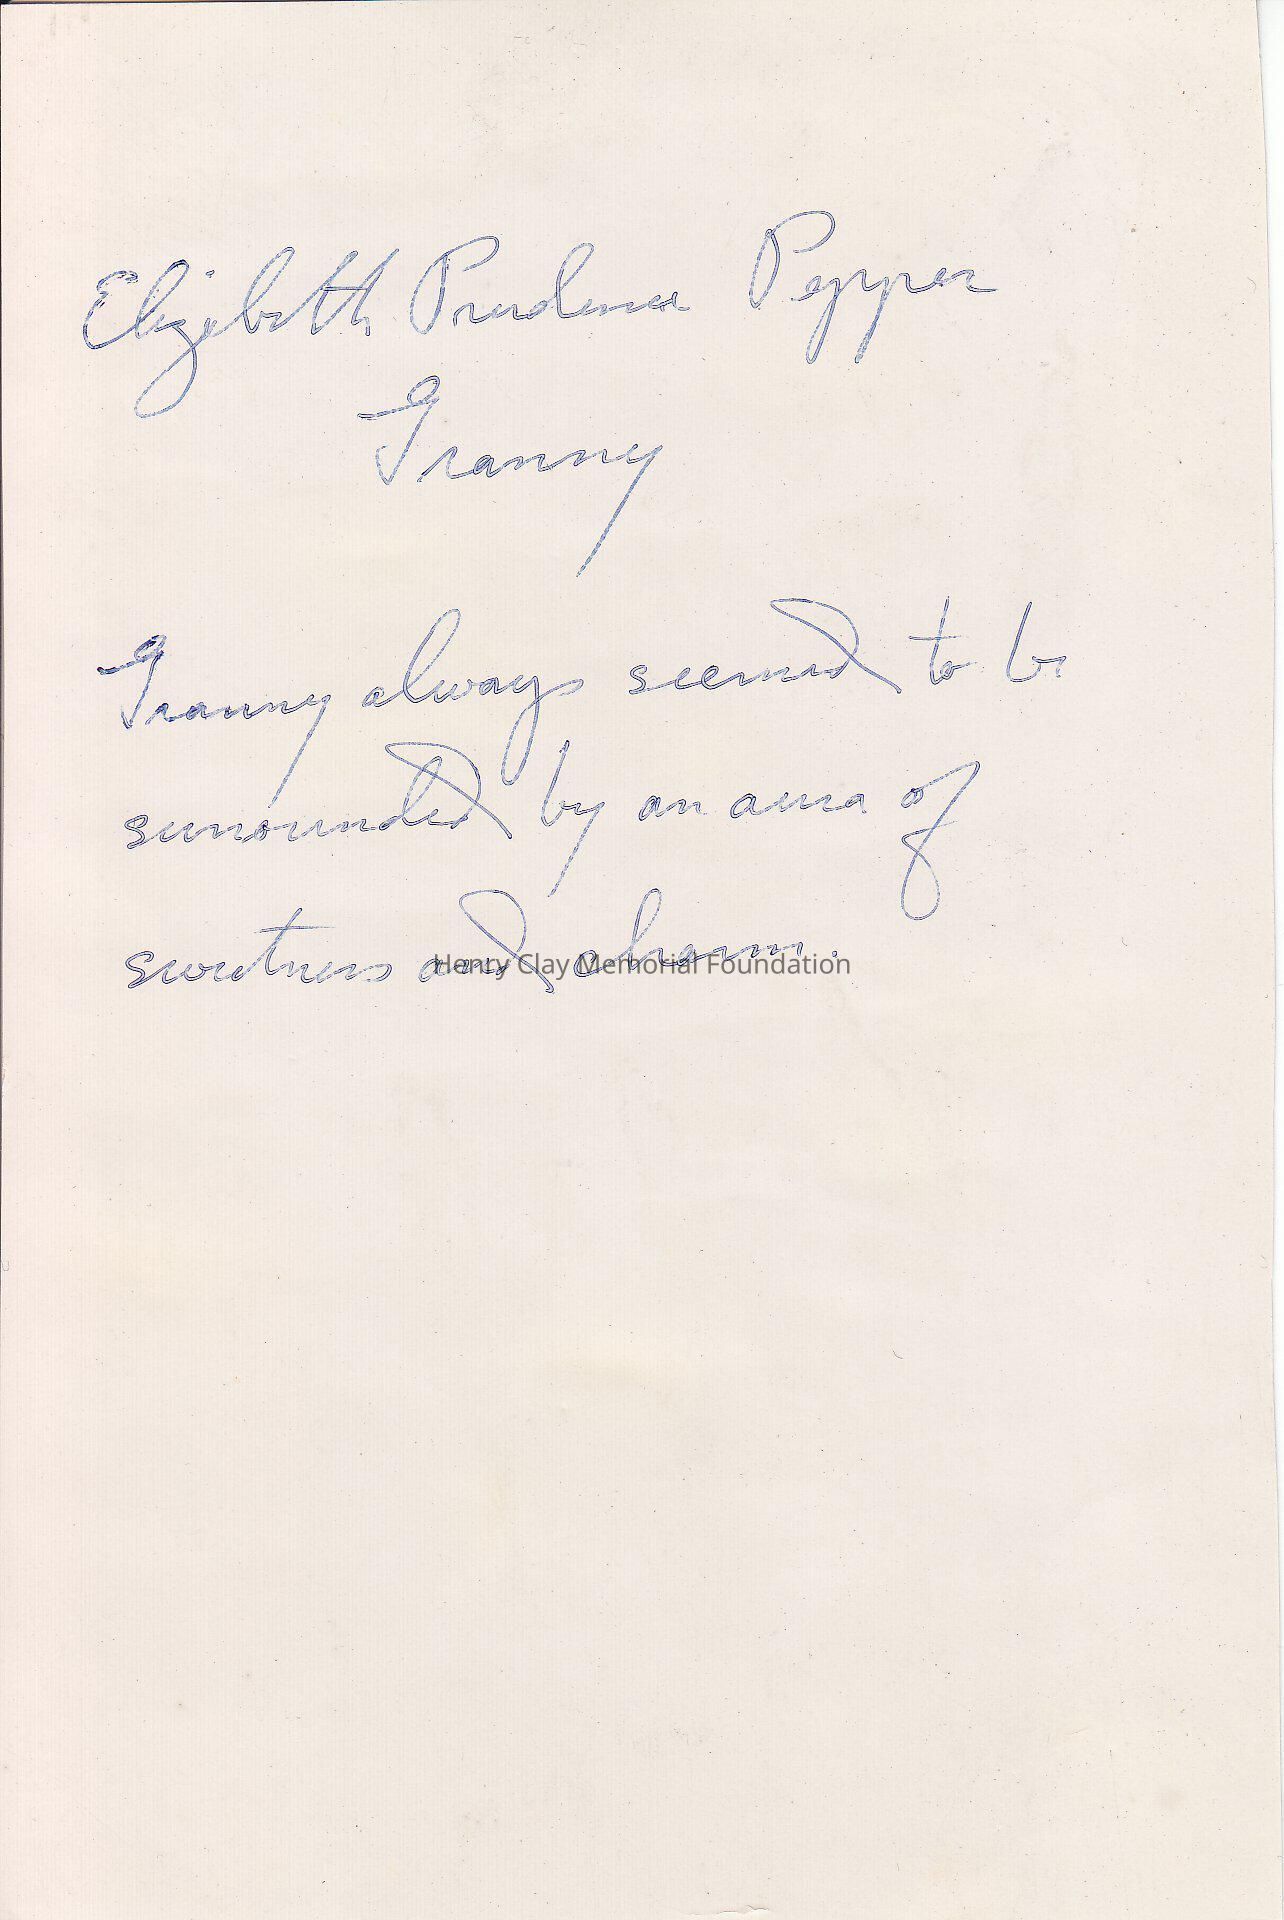 Elizabeth Prudence Pepper
Franny
Franny always seemed to be
surrounded by an aura of
sweetness and charm.
Henry Clay Memorial Foundation